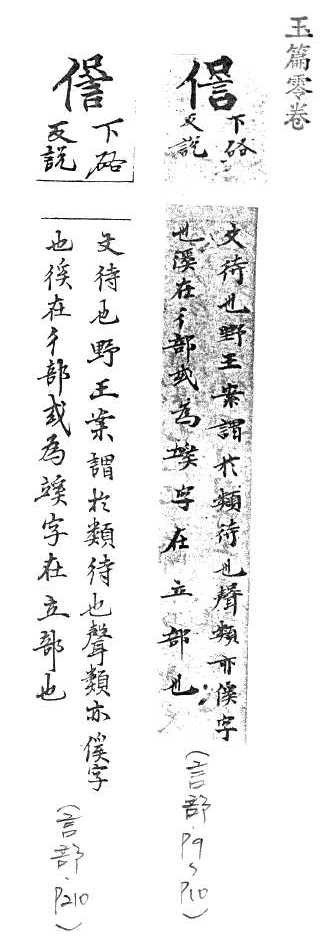 玉篇零卷
䚷
下硌
反說
文待也野王案謂於類待也聲類亦徯字
也徯在彳部或為字在立部也
(言部.P9~P10)
䚷
下硌
反說
文待也野王案謂於類待也聲類亦徯字
也徯在彳部或為字在立部也
(言部.P210)